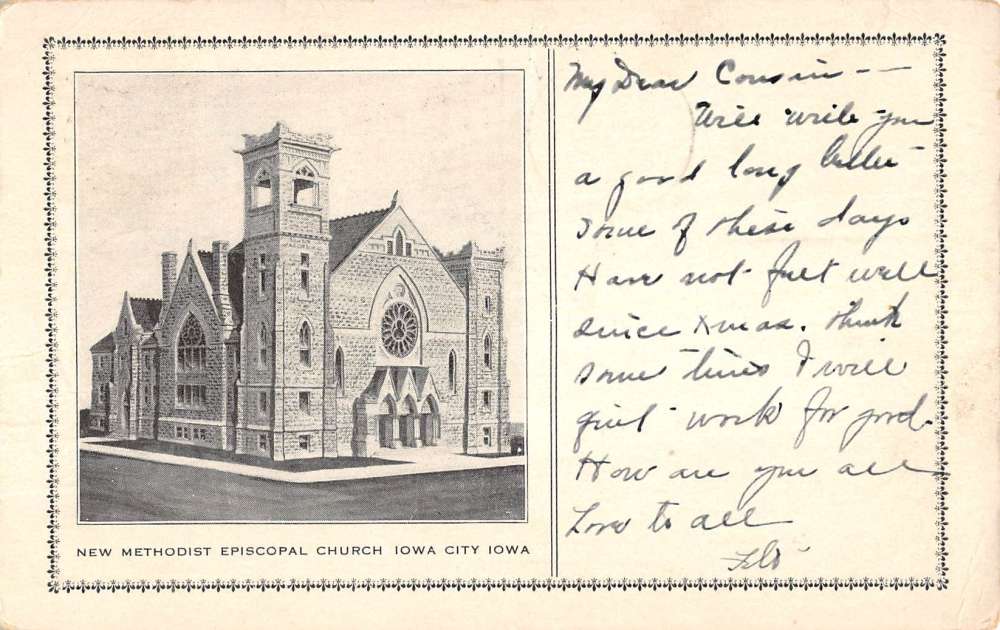 NEW METHODIST EPISCOPAL CHURCH IOWA CITY IOWA
My Dear Cousin --
Will write you
a good long letter
some of these days
Have not felt well
since Xmas. think
some times I will
quit work for good.
How are you all
Love to all
Flo